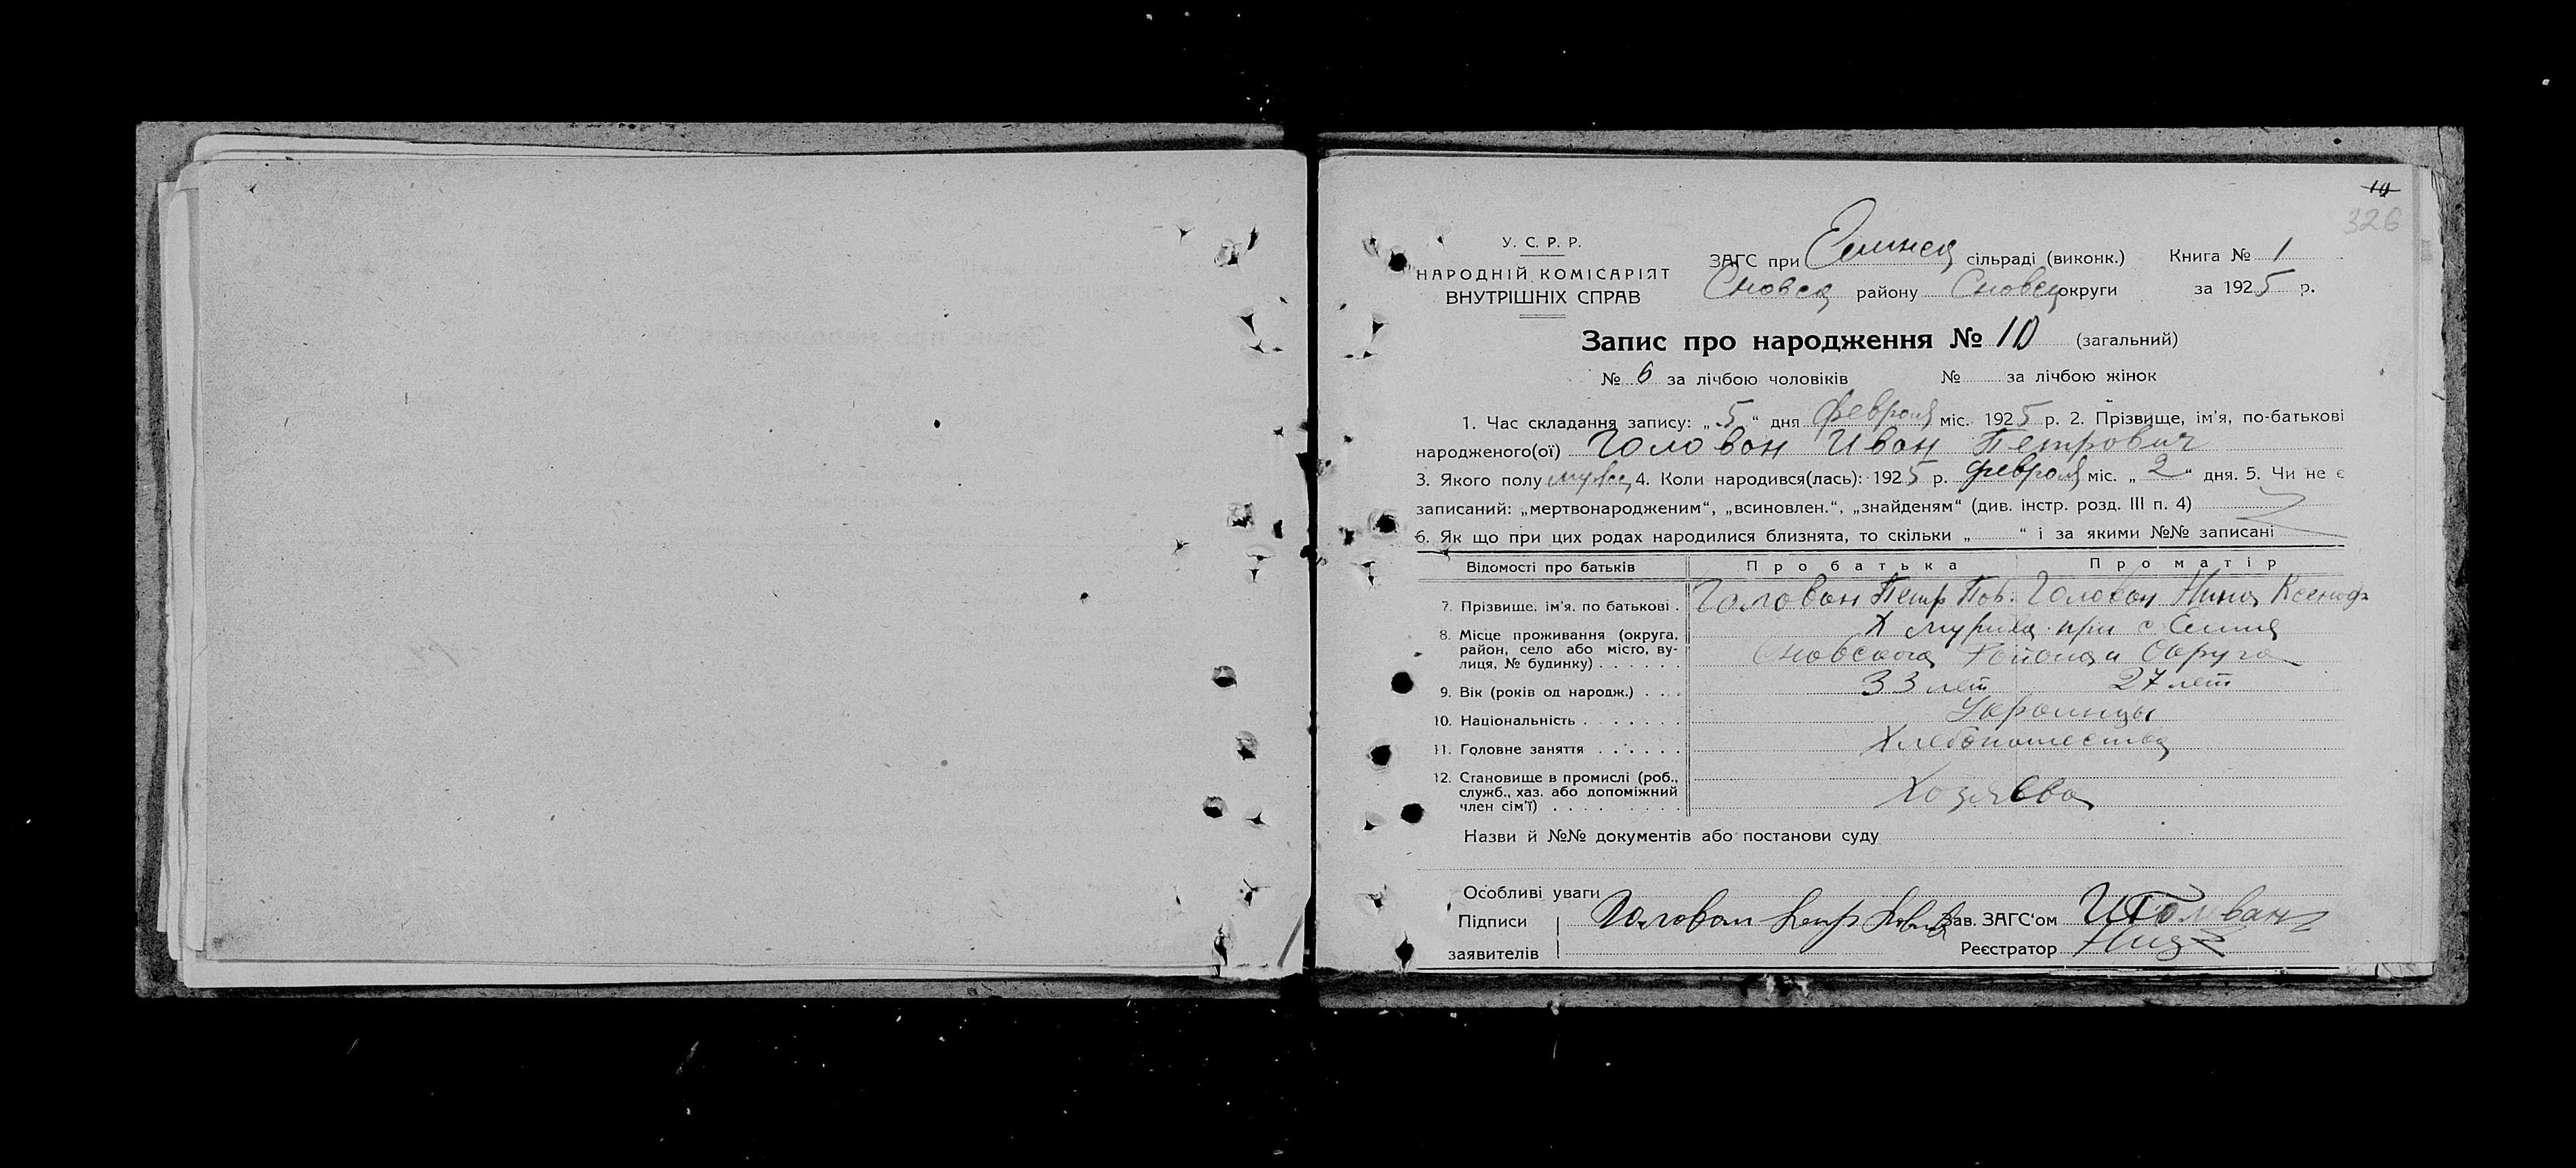 10
326
У. С. Р. Р.
НАРОДНІЙ КОМІСАРІЯТ
ВНУТРІШНІХ СПРАВ
ЗАГС при сільраді (виконк.) Книга № 1
Сновск району Сновск округи за 1925 р.
Запис про народження № 10 (загальний)
№ 6 за лічбою чоловіків № за лічбою жінок
1. Час складання запису: „ 5 “ дня февраля міс. 1925 р. 2. Прізвище, ім'я, по-батькові
народженого(ої) Голован Иван Петрович
3. Якого полу мужск 4. Коли народився(лась): 1925 р. февраля міс. „ 2 “ дня. 5. Чи не є
записаний: „мертвонародженим“, „всиновлен.“, „знайденям“ (див. інстр. розд. III п. 4)
6. Як що при цих родах народилися близнята, то скільки „ “ і за якими №№ записані
Відомості про батьків Про батька Про матір
7. Прізвище, ім'я, по батькові . Голован Петр Пав. Голован Нина Ксеноф
8. Місце проживання (округа, Х при с
район, село або місто, ву- Сновского Района и Округа
лиця, № будинку) . . . . . .
9. Вік (років од народж.) . . . 33 лет 27 лет
10. Національність . . . . . . . Украинцы
11. Головне заняття . . . . . . Хлебопашество
12. Становище в промислі (роб.,
служб., хаз. або допоміжний Хозяева
член сім'ї) . . . . . . . . .
Назви й №№ документів або постанови суду
Особливі уваги
Підписи Голован Петр Зав. ЗАГС'ом Голован
заявителів Реєстратор